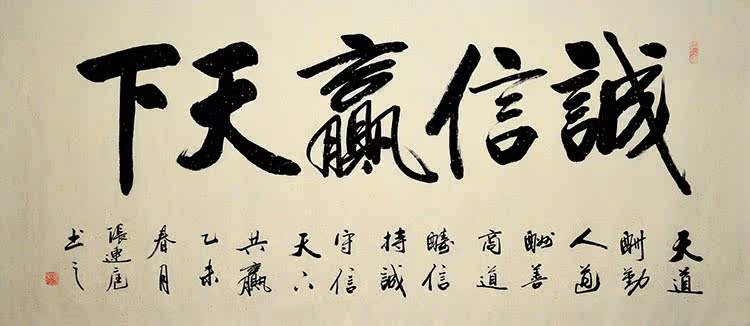 誠信贏天下
天道
酬勤
人道
酬善
商道
醻信
持誠
守信
天下
共贏
乙未
春月
張連
书之